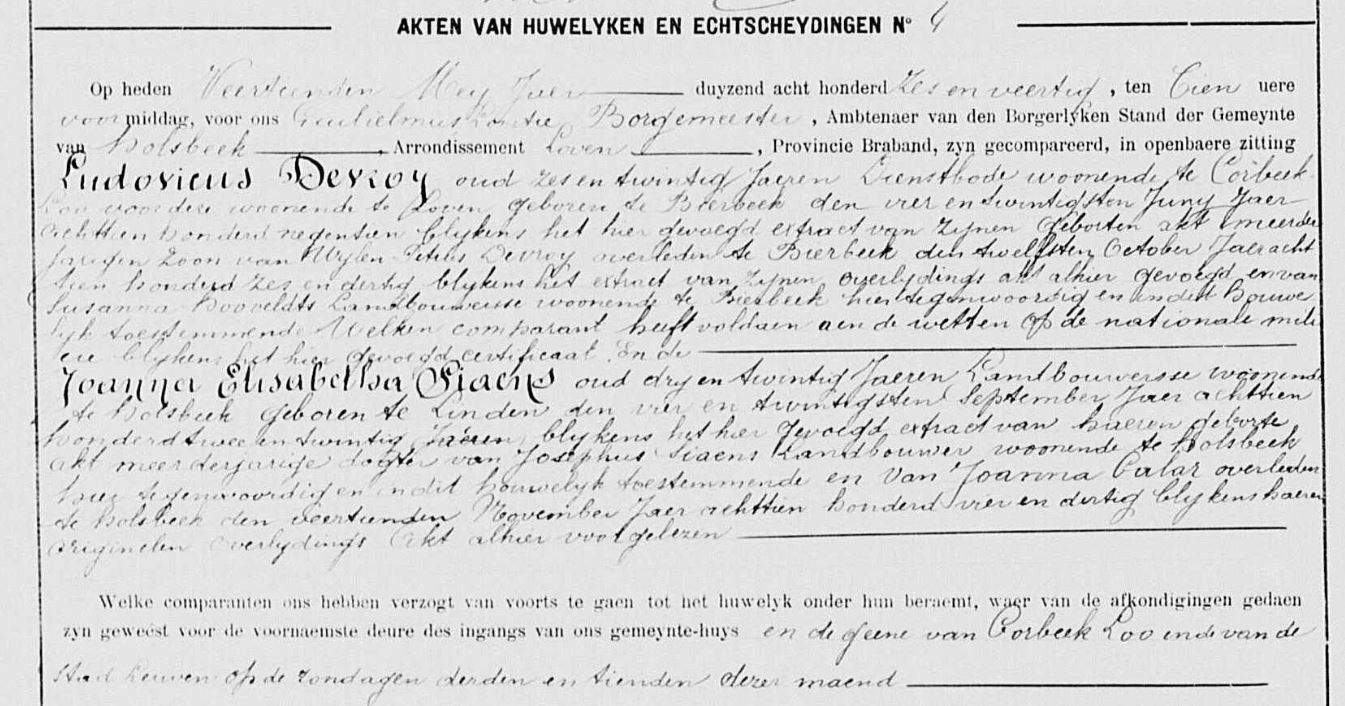 AKTEN VAN HUWELYKEN EN ECHTSCHEYDINGEN N° 4
Op heden Veertienden Mey Jaer duyzend acht honderd zes en veertig, ten Tien uere
voormiddag, voor ons Guilielmus Borgemeester, Ambtenaer van den Borgerlyken Stand der Gemeynte
van Holsbeek, Arrondissement Loven, Provincie Braband, zyn gecompareerd, in openbaere zitting
Ludovicus Devroy oud zes en twintig Jaeren Dienstbode woonende te Corbeek
Loo voordese woonende te Loven geboren te Bierbeek den vier en twintigsten Juny Jaer
achttien honderd negentien blykens het hier gevoegd extract van zijnen geborten akt meerder
jarigen Zoon van Wylen Petrus Devroy overleden te Bierbeek den twelfsten October Jaer acht
tien honderd zes en dertig blykens het extract van zijnen overlydings akt alhier gevoegd en van
Susanna Hooveldts Landbouwersse woonende te Bierbeek hier tegenwoordig en in dit houwe
lyk toestemmende Welken comparant heeft voldaen aen de wetten op de nationale mili
cie blykens het hier gevoegd certificaat. En de
Joanna Elisabetha Siaens oud dry en twintig Jaeren Landbouwersse woonende
te Holsbeek geboren te Linden den vier en twintigsten September Jaer achttien
honderd twee en twintig Jaeren, blykens het hier gevoegd extract van haeren geborte
akt meerderjarige dogter van Josephus Siaens Landbouwer woonende te Holsbeek
hier tegenwoordig en in dit houwelyk toestemmende en van Joanna overleden
te Holsbeek den veertienden November Jaer achttien honderd vier en dertig blykens haeren
originelen overlydings akt alhier voorgelezen
Welke comparanten ons hebben verzogt van voorts te gaen tot het huwelyk onder hun beraemt, waer van de afkondigingen gedaen
zyn geweest voor de voornaemste deure des ingangs van ons gemeynte-huys en de geene van Corbeek Loo ende van de
Stad Leuven op de zondagen derden en tienden dezer maend